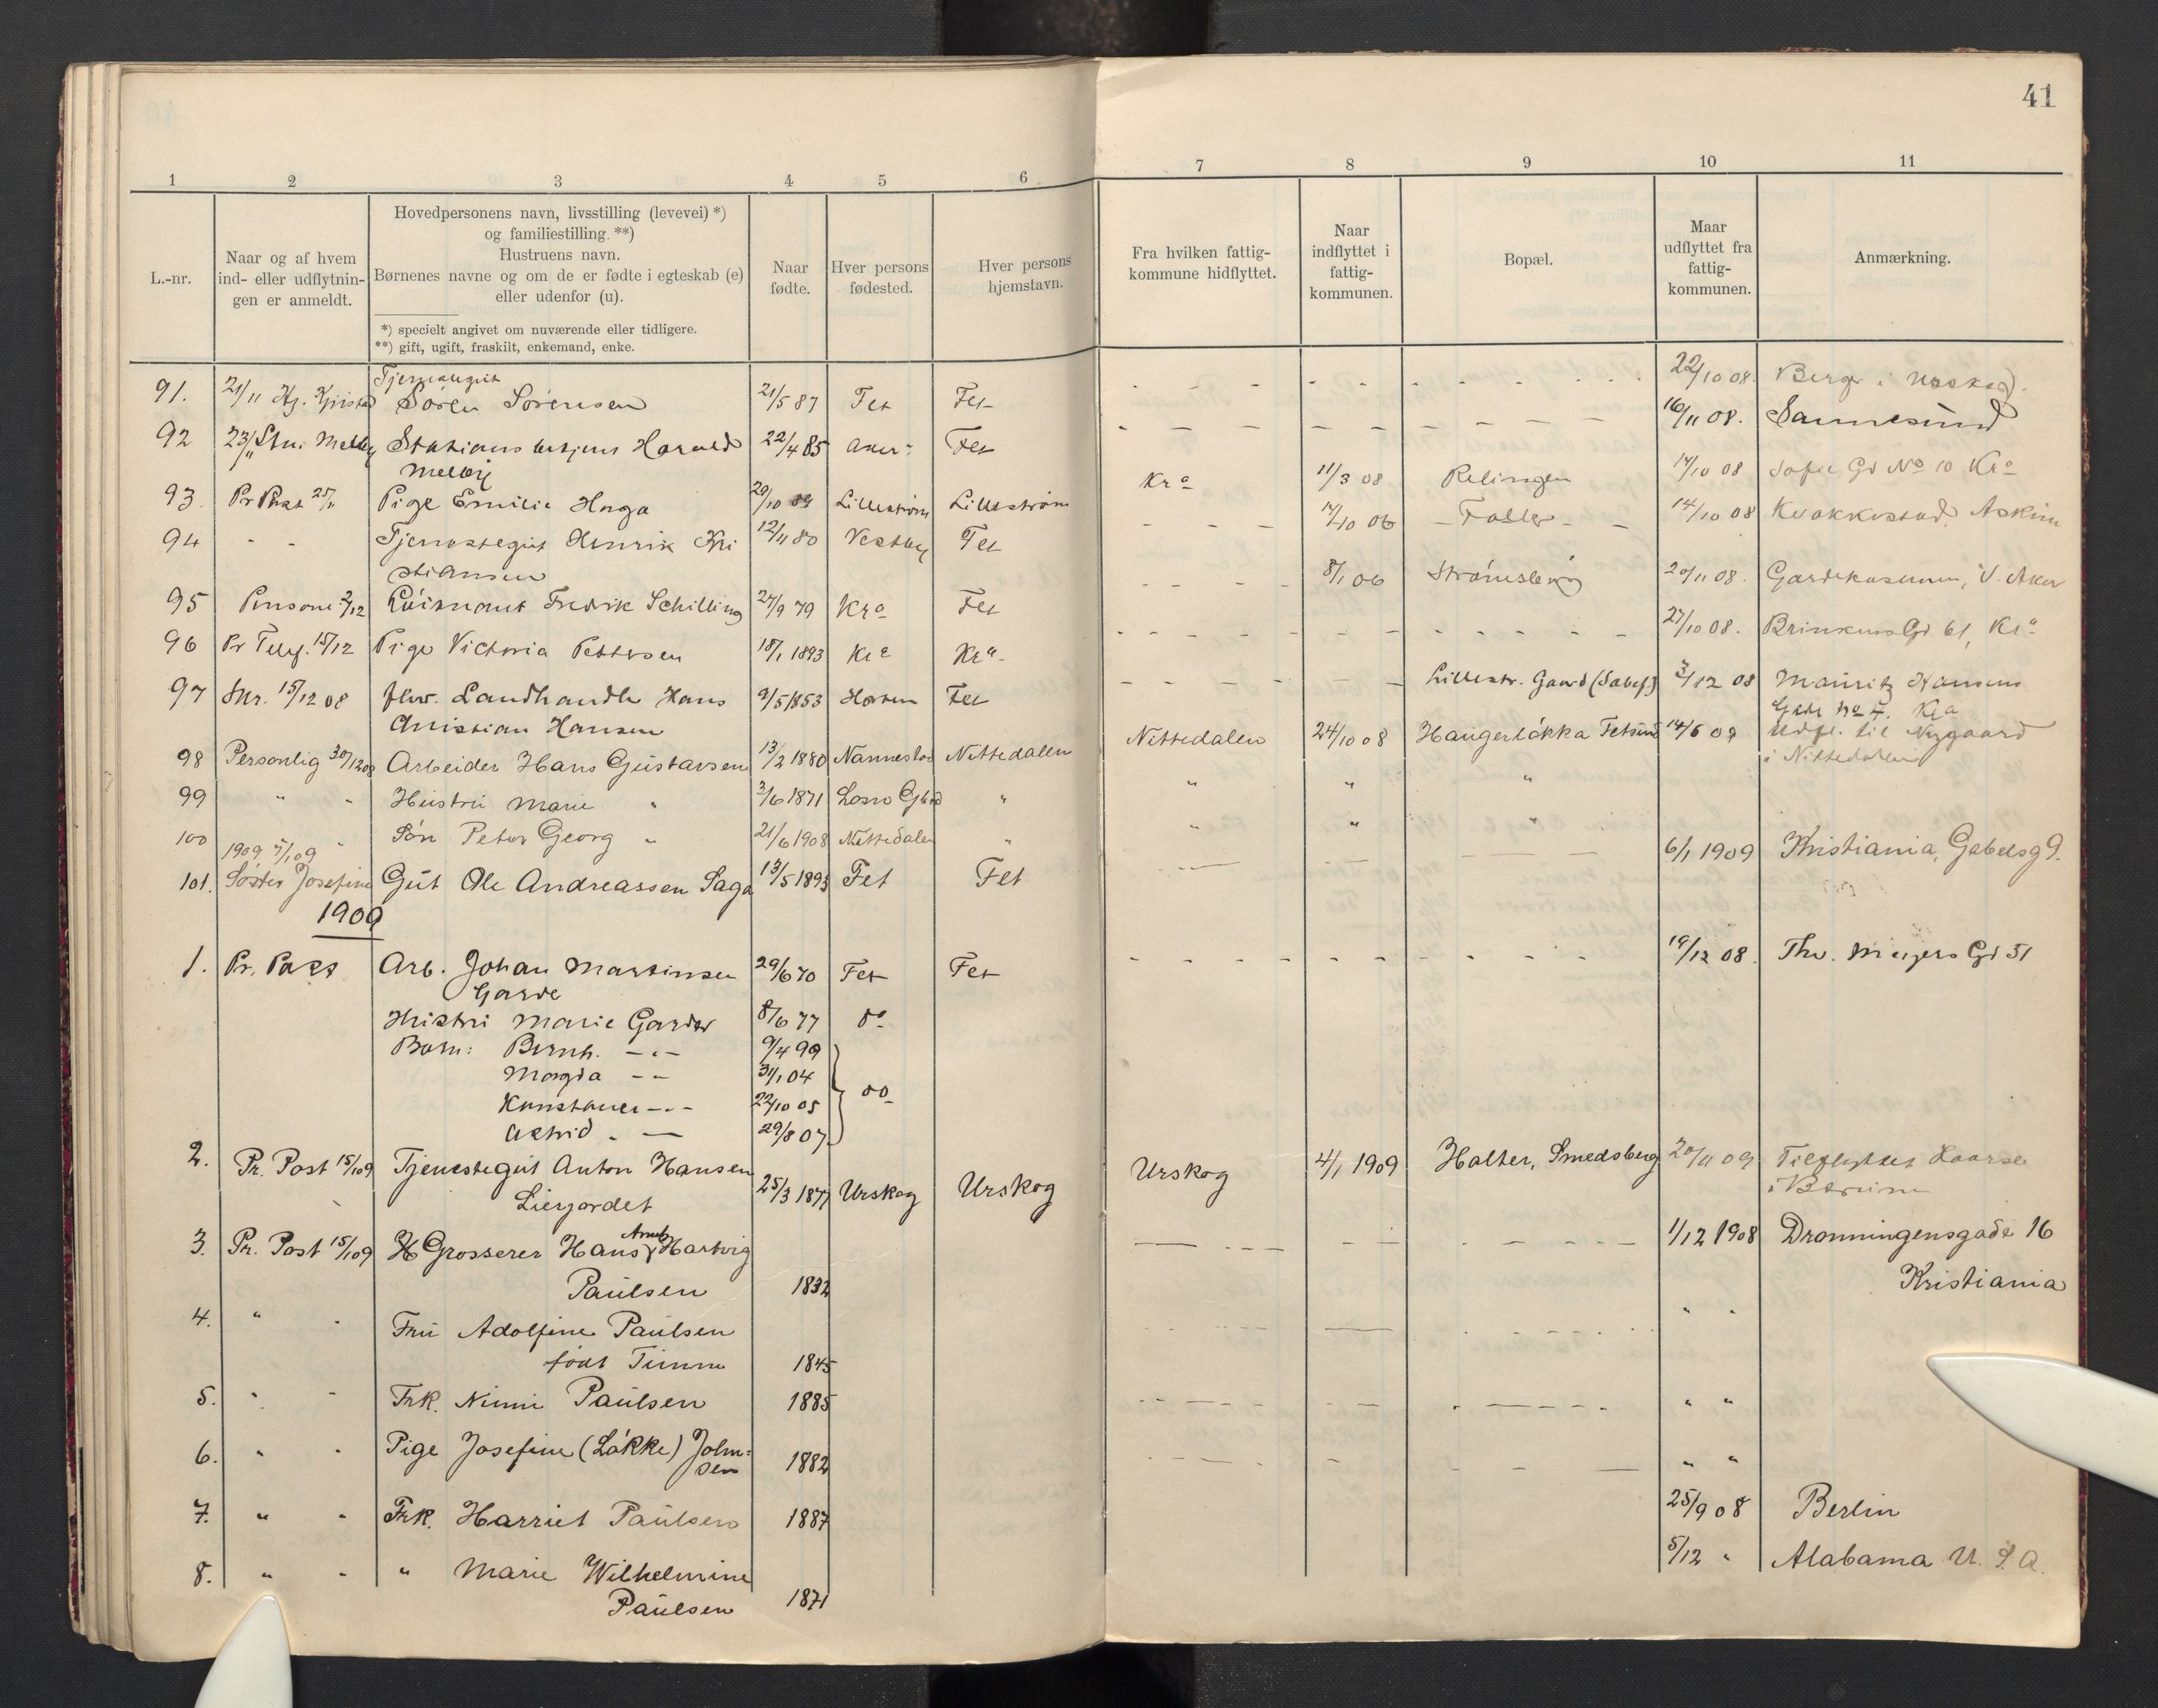 41
1 2 3 4 5 6 7 8 9 10 11
L.-nr.
Naar og af hvem
ind- eller udflytnin-
gen er anmeldt.
Hovedpersonens navn, livsstilling (levevei) *)
og familiestilling. **)
Hustruens navn.
Børnenes navne og om de er fødte i egteskab (e)
eller udenfor (u).
*) specielt angivet om nuværende eller tidligere.
**) gift, ugift, fraskilt, enkemand, enke.
Naar
fødte.
Hver persons
fødested.
Hver persons
hjemstavn.
Fra hvilken fattig-
kommune hidflyttet.
Naar
indflyttet i
fattig-
kommunen.
Bopæl.
Maar
udflyttet fra
fattig-
kommunen.
Anmærkning.
Tjenestegut
91. 21/11 Søren Sørensen 21/5 87 Fet Fet - - - - 22/10 08. Berger i Urskog.
92 23/11 Stn. Melby Stationsbetjent Harald 22/4 85 Aker Fet - - - - 16/11 08. Sannesund
Melby
93. Pr Post 25/11 Pige Emilie Haga 29/10 89 Lillestrøm Lillestrøm Kra 11/3 08 Relingen 14/10 08 Sofie Gd No 10 Kra
94 - - Tjenestegut Henrik Kri 12/11 80 Vestby Fet - - - 14/10 06 Faller 14/10 08 Askim
stiansen
95 Personl 2/12 Løitnant Fredrik Schilling 27/9 79 Kra Fet - - - - 8/1 06 20/11 08. Gardekasernen, V. Aker
96 Pr Telef. 15/12 Pige Victoria Pettersen 18/1 1893 Kra Kra - - - - 27/10 08. Brinkens Gd 61, Kra
97 15/12 08 fhv. Landhandler Hans 9/5 1853 Horten Fet - - - - Lillestr. Gaard 3/12 08 Mauritz Hansens
Christian Hansen Gade No 4. Kra
98 Personlig 30/12 08 Arbeider Hans Gustavsen 13/2 1880 Nannestad Nittedalen Nittedalen 24/10 08 Haugerløkka Fetsund 14/6 09 Udfl. til Nygaard
i Nittedalen
99 " " Hustru Marie " 3/6 1871 " " " "
100 " Søn Peter Georg " 21/6 1908 Nittedalen " " " "
1909 7/1 09
101. Søster Josefine Gut Ole Andreassen Saga 13/5 1893 Fet Fet — — — 6/1 1909 Kristiania, Gabelsg 9.
1909
1. Pr. Post Arb. Johan Martinsen 29/6 70 Fet Fet - - - - 19/12 08. Thv. Meyers Gd 51
Garder
Hustru Marie Garder 8/6 77 do
Børn: Bernh. - " - 9/4 99
Magda - " - 31/1 04
Konstance - " - 22/10 05 do
Astrid - " — 29/8 07
2. Pr. Post 15/1 09 Tjenestegut Anton Hansen Urskog 4/1 1909 Halter, Smedsberg 20/11 09 Tilflyttet
Lierjordet 25/3 1877 Urskog Urskog i Bærum
3. Pr. Post 15/1 09 Grosserer Hans Arneb. Hartvig — - - - 1/12 1908 Dronningensgade 16
Paulsen 1832 Kristiania
4. " " Fru Adolfine Paulsen - - - — " "
født Timm 1845
5. " " Frk. Ninni Paulsen 1885 - - - — " "
6. " " Pige Josefine (Løkke) John=
sen 1882 - - - — " "
7. " " Frk. Harriet Paulsen 1887 25/9 08 Berlin
8. " " " Marie Wilhelmine 5/12 " Alabama U. S. A.
Paulsen 1871